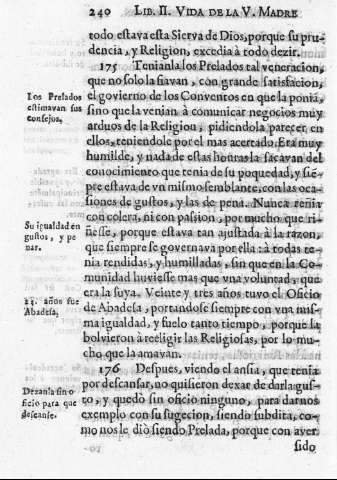 240 LIB. II. VIDA DE LA V. MADRE
todo estava esta Sierva de Dios, porque su pru-
dencia, y Religion, excedia à todo dezir.
175 Tenianla los Prelados tal veneracion,
que no solo la fiavan, con grande satisfacion,
Los Prelados
estimavan sus
consejos.
el govierno de los Conventos en que la ponia,
sino que la venian à comunicar negocios muy
arduos de la Religion, pidiendola parecer en
ellos, teniendole por el mas acertado. Era muy
humilde, y nada de estas honras la sacavan del
conocimiento que tenia de su poquedad, y siē-
pre estava de vn mismo semblante, con las oca-
siones de gustos, y las de pena. Nunca renia
Su igualdad en
gustos, y pe
nar.
con colera, ni con passion, por mucho que ri-
ñesse, porque estava tan ajustada à la razon,
que siempre se governava por ella: à todas te-
nia rendidas, y humilladas, sin que en la Co-
munidad huviesse mas que vna voluntad, que
23. años fue
Abadesa,
era la suya. Veinte y tres años tuvo el Oficio
de Abadesa, portandose siempre con vna mis-
ma igualdad, y fuelo tanto tiempo, porque la
bolvieron à reeligir las Religiosas, por lo mu-
cho que la amavan.
176 Despues, viendo el ansia, que tenia
Dexanla sin o-
ficio para que
descanse.
por descansar, no quisieron dexar de darla gus-
to, y quedò sin oficio ninguno, para darnos
exemplo con su sugecion, siendo subdita, co-
mo nos le diò siendo Prelada, porque con aver
sido